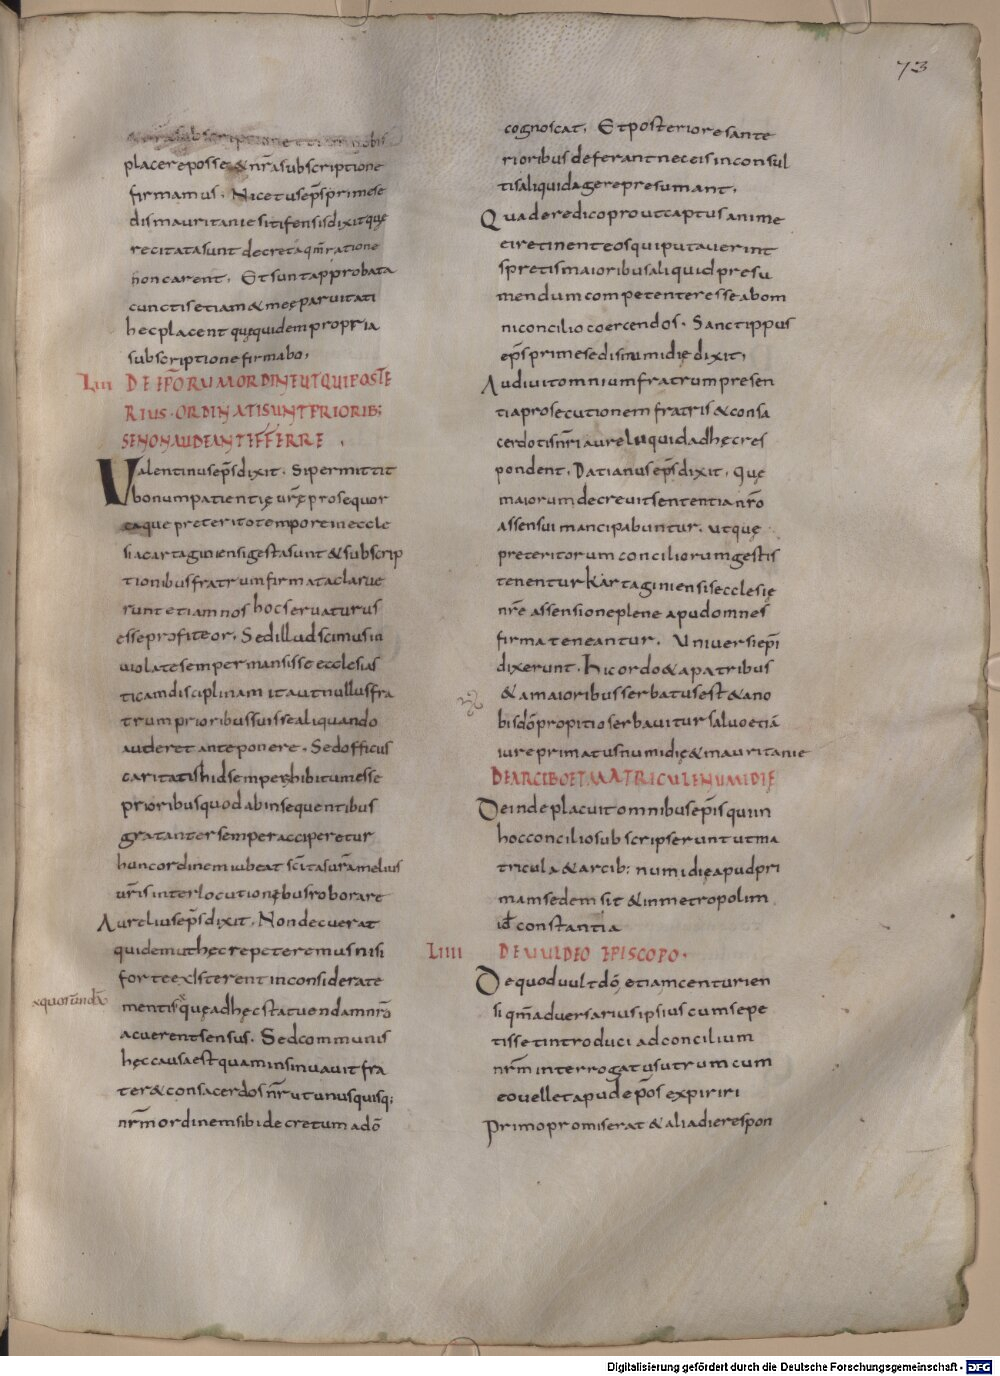 73
subscriptione et nobis
placere posse & nr̄a subscriptione
firmamus. Nicetus ep̄s prime se
dis mauritanie sitifensis dixit quę
recitata sunt decreta qm̄ ratione
non carent. Et sunt approbata
cunctis etiam & meę parvitati
hec placent quę quidem propria
subscriptione firmabo,
LIII DE EP̄ORUM ORDINE UT QUI POSTE
RIUS ORDINATI SUNT PRIORIB;
SE NON AUDEANT PFERRE.
Valentinus ep̄s dixit. Si permittit
bonum patientię ur̄ę prosequor
eaque preterito tempore in eccle
sia cartaginiensi gesta sunt & subscrip
tionibus fratrum firmata clarue
runt etiam nos hoc seruaturus
esse profiteor. Sed illud scimus in
uiolate semper mansisse ecclesias
ticam disciplinam ita ut nullus fra
trum prioribus suis se aliquando
auderet anteponere. Sed officus
caritatis hid semper exhibitum esse
prioribus quod ab insequentibus
gratanter semper acciperetur
hunc ordinem iubeat sc̄itas ur̄a melius
ur̄is interlocutionębus roborare
Aurelius ep̄s dixit. Non decuerat
quidem ut hęc repeteremus nisi
forte exIsterent inconsiderate
mentis quę ad hęc statuendam nr̄o
acuerent sensus. Sed communis
hęc causa est quam insinuauit fra
ter & consacerdos nr̄ ut unusquisq;
nr̄m ordinem sibi decretum a dō
cognoscat. Et posteriores ante
rioribus deferant nec eis inconsul
tis aliquid agere presumant.
Quade re dico prout captus anime
ei retinent eos qui putauerint
spretis maioribus aliquid presu
mendum competenter esse ab om
ni concilio coercendos. Sanctippus
ep̄s prime sedis numidię dixit,
Audiuit omnium fratrum presen
tia prosecutionem fratris & consa
cerdotis nr̄i aureli quid ad hęc res
pondent. Datianus ep̄s dixit. Quę
maiorum decreuit sententia nr̄o
assensui mancipabuntur. ut quę
preteritorum conciliorum gestis
tenentur Kartaginiensis ecclesię
nr̄e assensione plene apud omnes
firma teneantur. Uniuersi ep̄i
dixerunt. hic ordo & a patribus
& a maioribus serbatus est & a no
bis dō propitio serbauitur saluo etiā
iure primatus numidię & mauritanie
DE ARCIBO ET MATRICULE NUMIDIĘ
Deinde placuit omnibus ep̄is qui in
hoc concilio subscripserunt ut ma
tricula & arcib: numidię apud pri
mam sedem sit & in metropolim
id constantia
LIIII DE UULDEO EPISCOPO.
De quoduultdō, etiam centurien
si qm̄ aduersarius ipsius cum sepe
tisset introduci ad concilium
nr̄m interrogatus utrum cum
eo uellet apud ep̄os expiriri
Primo promiserat & alia die respon
Digitalisierung gefördert durch die Deutsche Forschungsgemeinschaft - DFG